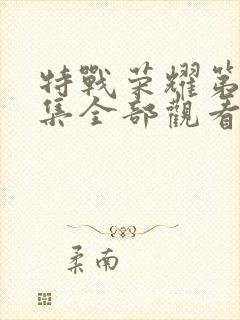 特戰荣耀第
集全部觀看
柔南